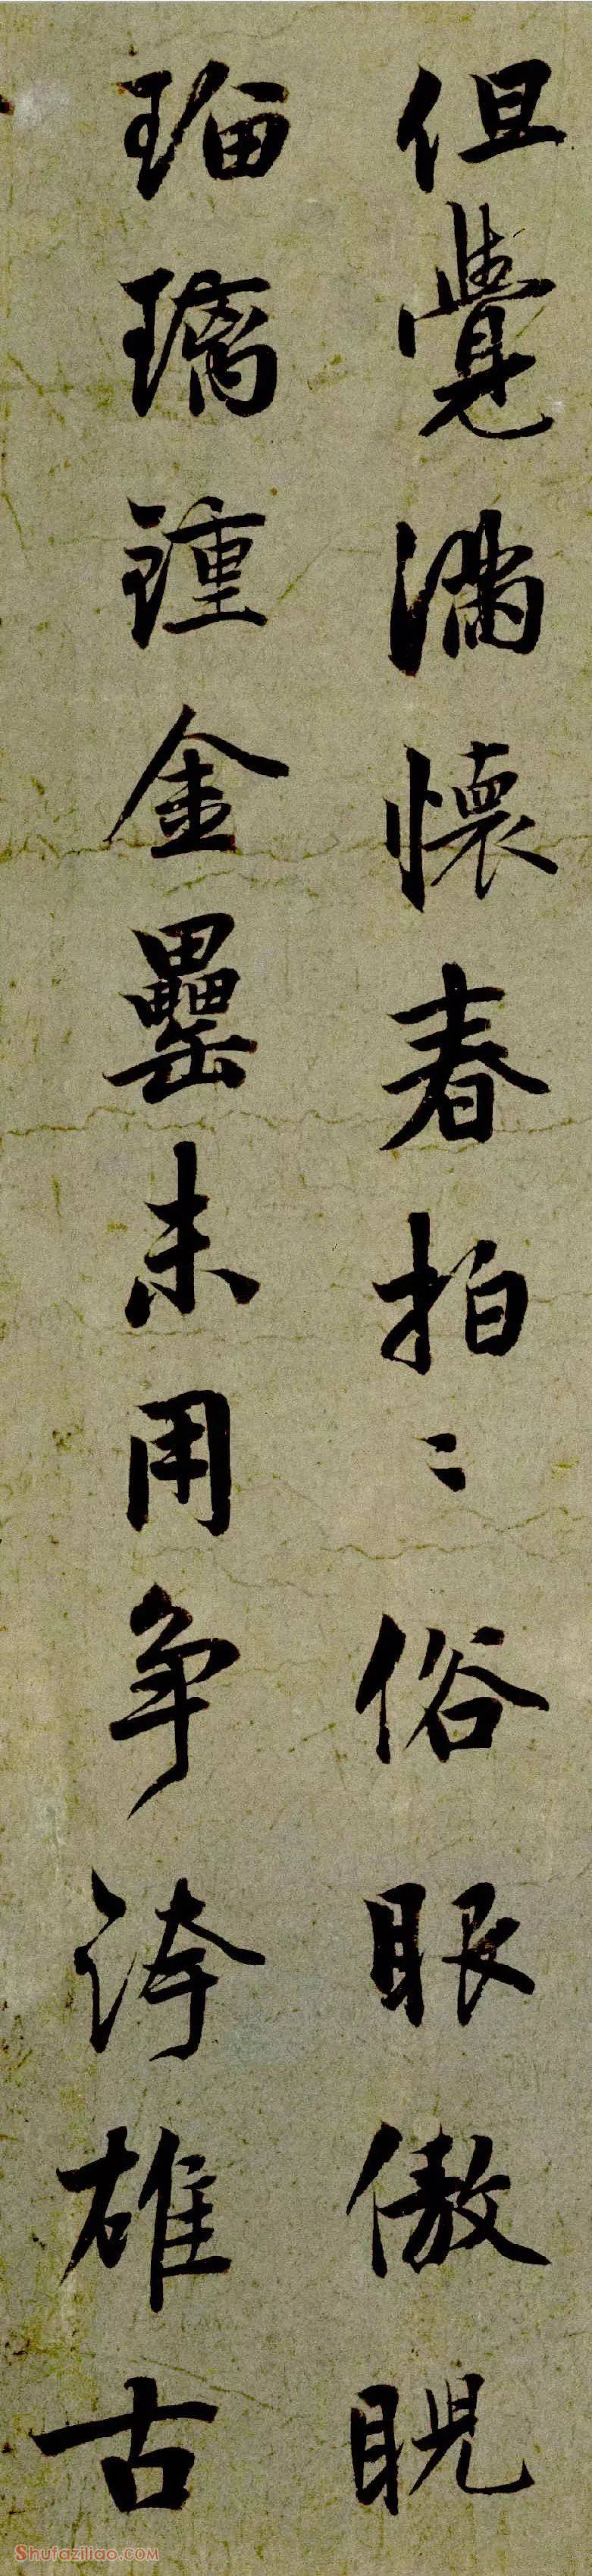 但覺滿懷春拍〻俗眼傲睨
瑠璃鍾金罍未用争誇雄古
Shufaziliao.COM